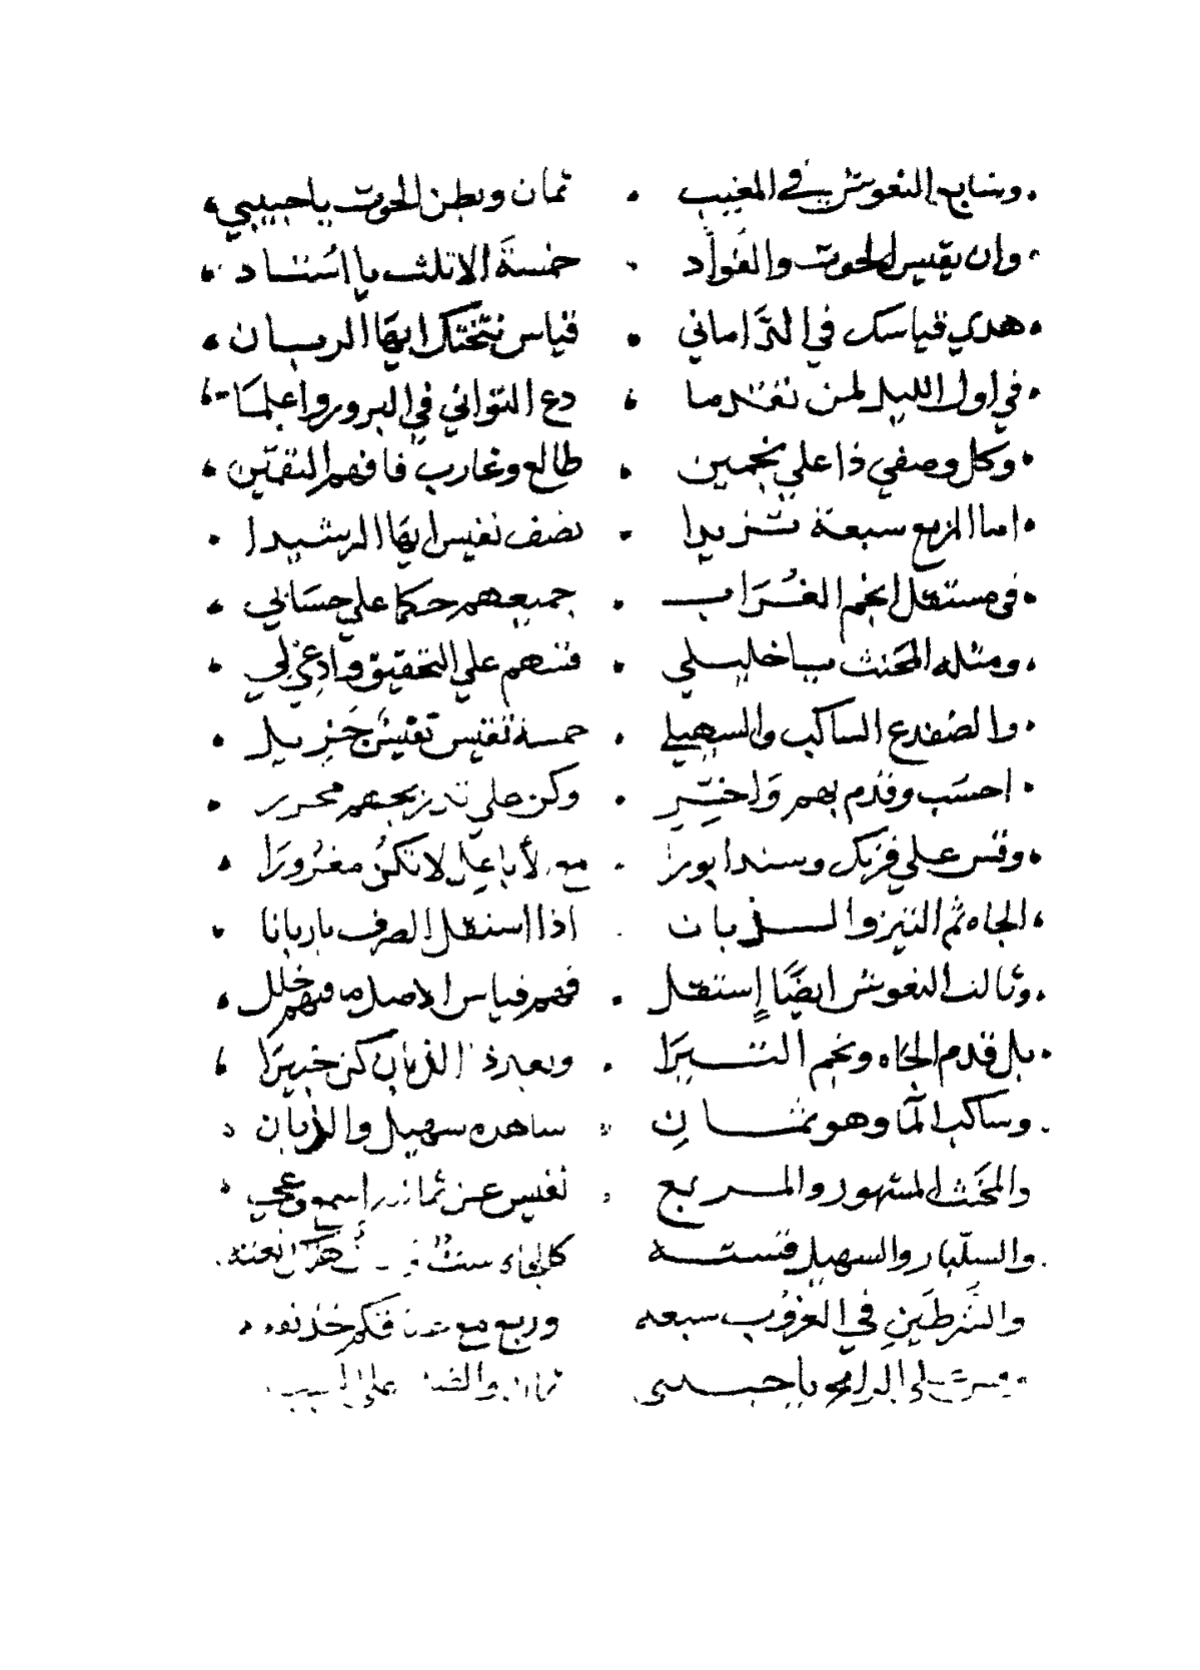 وسابع النعوش في المغيب . ثمان وبطن الحوت يا حبيبي
وان تقيس الحوت والفواد . خمسة الا ثلث يا استاد
هدي قياسك في الترّاماني . قياس نتختك ايها الربان
في اول الليل لمن تقدما ، دع التواني في البرور واعلما
وكل وصفي ذا علي نجمين . طالع وغارب فافهم التقتين
اما المربع سبعة تزيدا - نصف نفيس ايها الرشيدا
في مستقل انجم الغراب . جميعهم حكما علي حسابي
ومثله المحنث يا خليلي . فتنهم علي التحقيق وادعي لي
والضفدع الساكب والسهيلي . خمسة نفيس تفيس جزيل
احسب وقدم بهم واختبر . وكن علي بجمعهم محرر
وقس علي فزبك وسندابورا . مع لا تكن مغرورا
الجاه ثم النير والذبان . اذا استقل الصرف يا ربانا
وثالث النعوش ايضا إستقل . فهم قياس الاصل ما فيهم خلل
بل قدم الجاه ونجم النيرا . وبعد ذا الذبان كن خبيرا
وساكب المآ وهو ثمان . شاهده سهيل والذبان
والمخنث المشهور والمربع . نفيس عن
والسلبار والسهيل فسته كالجاه ست
والشرطين في الغروب سبعه وربع مع
الرامح يا حبيبي ثمان علي